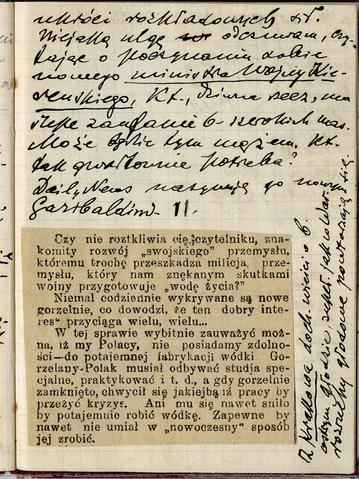 ności rozkładowych sił.
Niejaką ulgę odczuwam, czy-
tając o poczynaniu sobie
nowego ministra Wojny Kie-
reńskiego, kt., dziwna rzecz, ma
tutaj zaufanie b. szerokich mas.
Może będzie tym mężem, kt.
tak gwałtownie potrzeba?
Daily News nazywają go nowym
Garibaldim!!.
Czy nie roztkliwia cię, czytelniku, zna-
komity rozwój „swojskiego" przemysłu,
któremu trochę przeszkadza milicja, prze-
mysłu, który nam znękanym skutkami
wojny przygotowuje „wodę życia?"
Niemal codziennie wykrywane są nowe
gorzelnie, co dowodzi, że ten dobry inte-
res przyciąga wielu, wielu...
W tej sprawie wybitnie zauważyć moż-
na, iż my Polacy, nie posiadamy zdolno-
ści—do potajemnej fabrykacji wódki. Go-
rzelany-Polak musiał odbywać studja spe-
cjalne, praktykować i t. d., a gdy gorzelnie
zamknięto, chwycił się jakiejbądź pracy by
przeżyć kryzys. Ani mu się nawet sniło
by potajemnie robić wódkę. Zapewne by
nawet nie umiał w „nowoczesny" sposób
jej zrobić.
Z Krakowa doch. wieści o b.
ostrym głodzie
rozruchy głodowe powtarzają się.